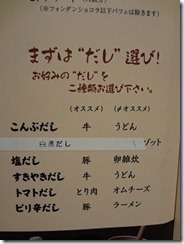 (※フォンダンショコラ以下パフェは除きます)
まずは"だし"選び!
お好みの"だし"を
ご種類お選び下さい。
(オススメ) (〆オススメ)
こんぶだし 牛 うどん
白湯だし ゾット
塩だし 豚 卵雑炊
すきやきだし 牛 うどん
トマトだし とり肉 オムチーズ
ピリ辛だし 豚 ラーメン